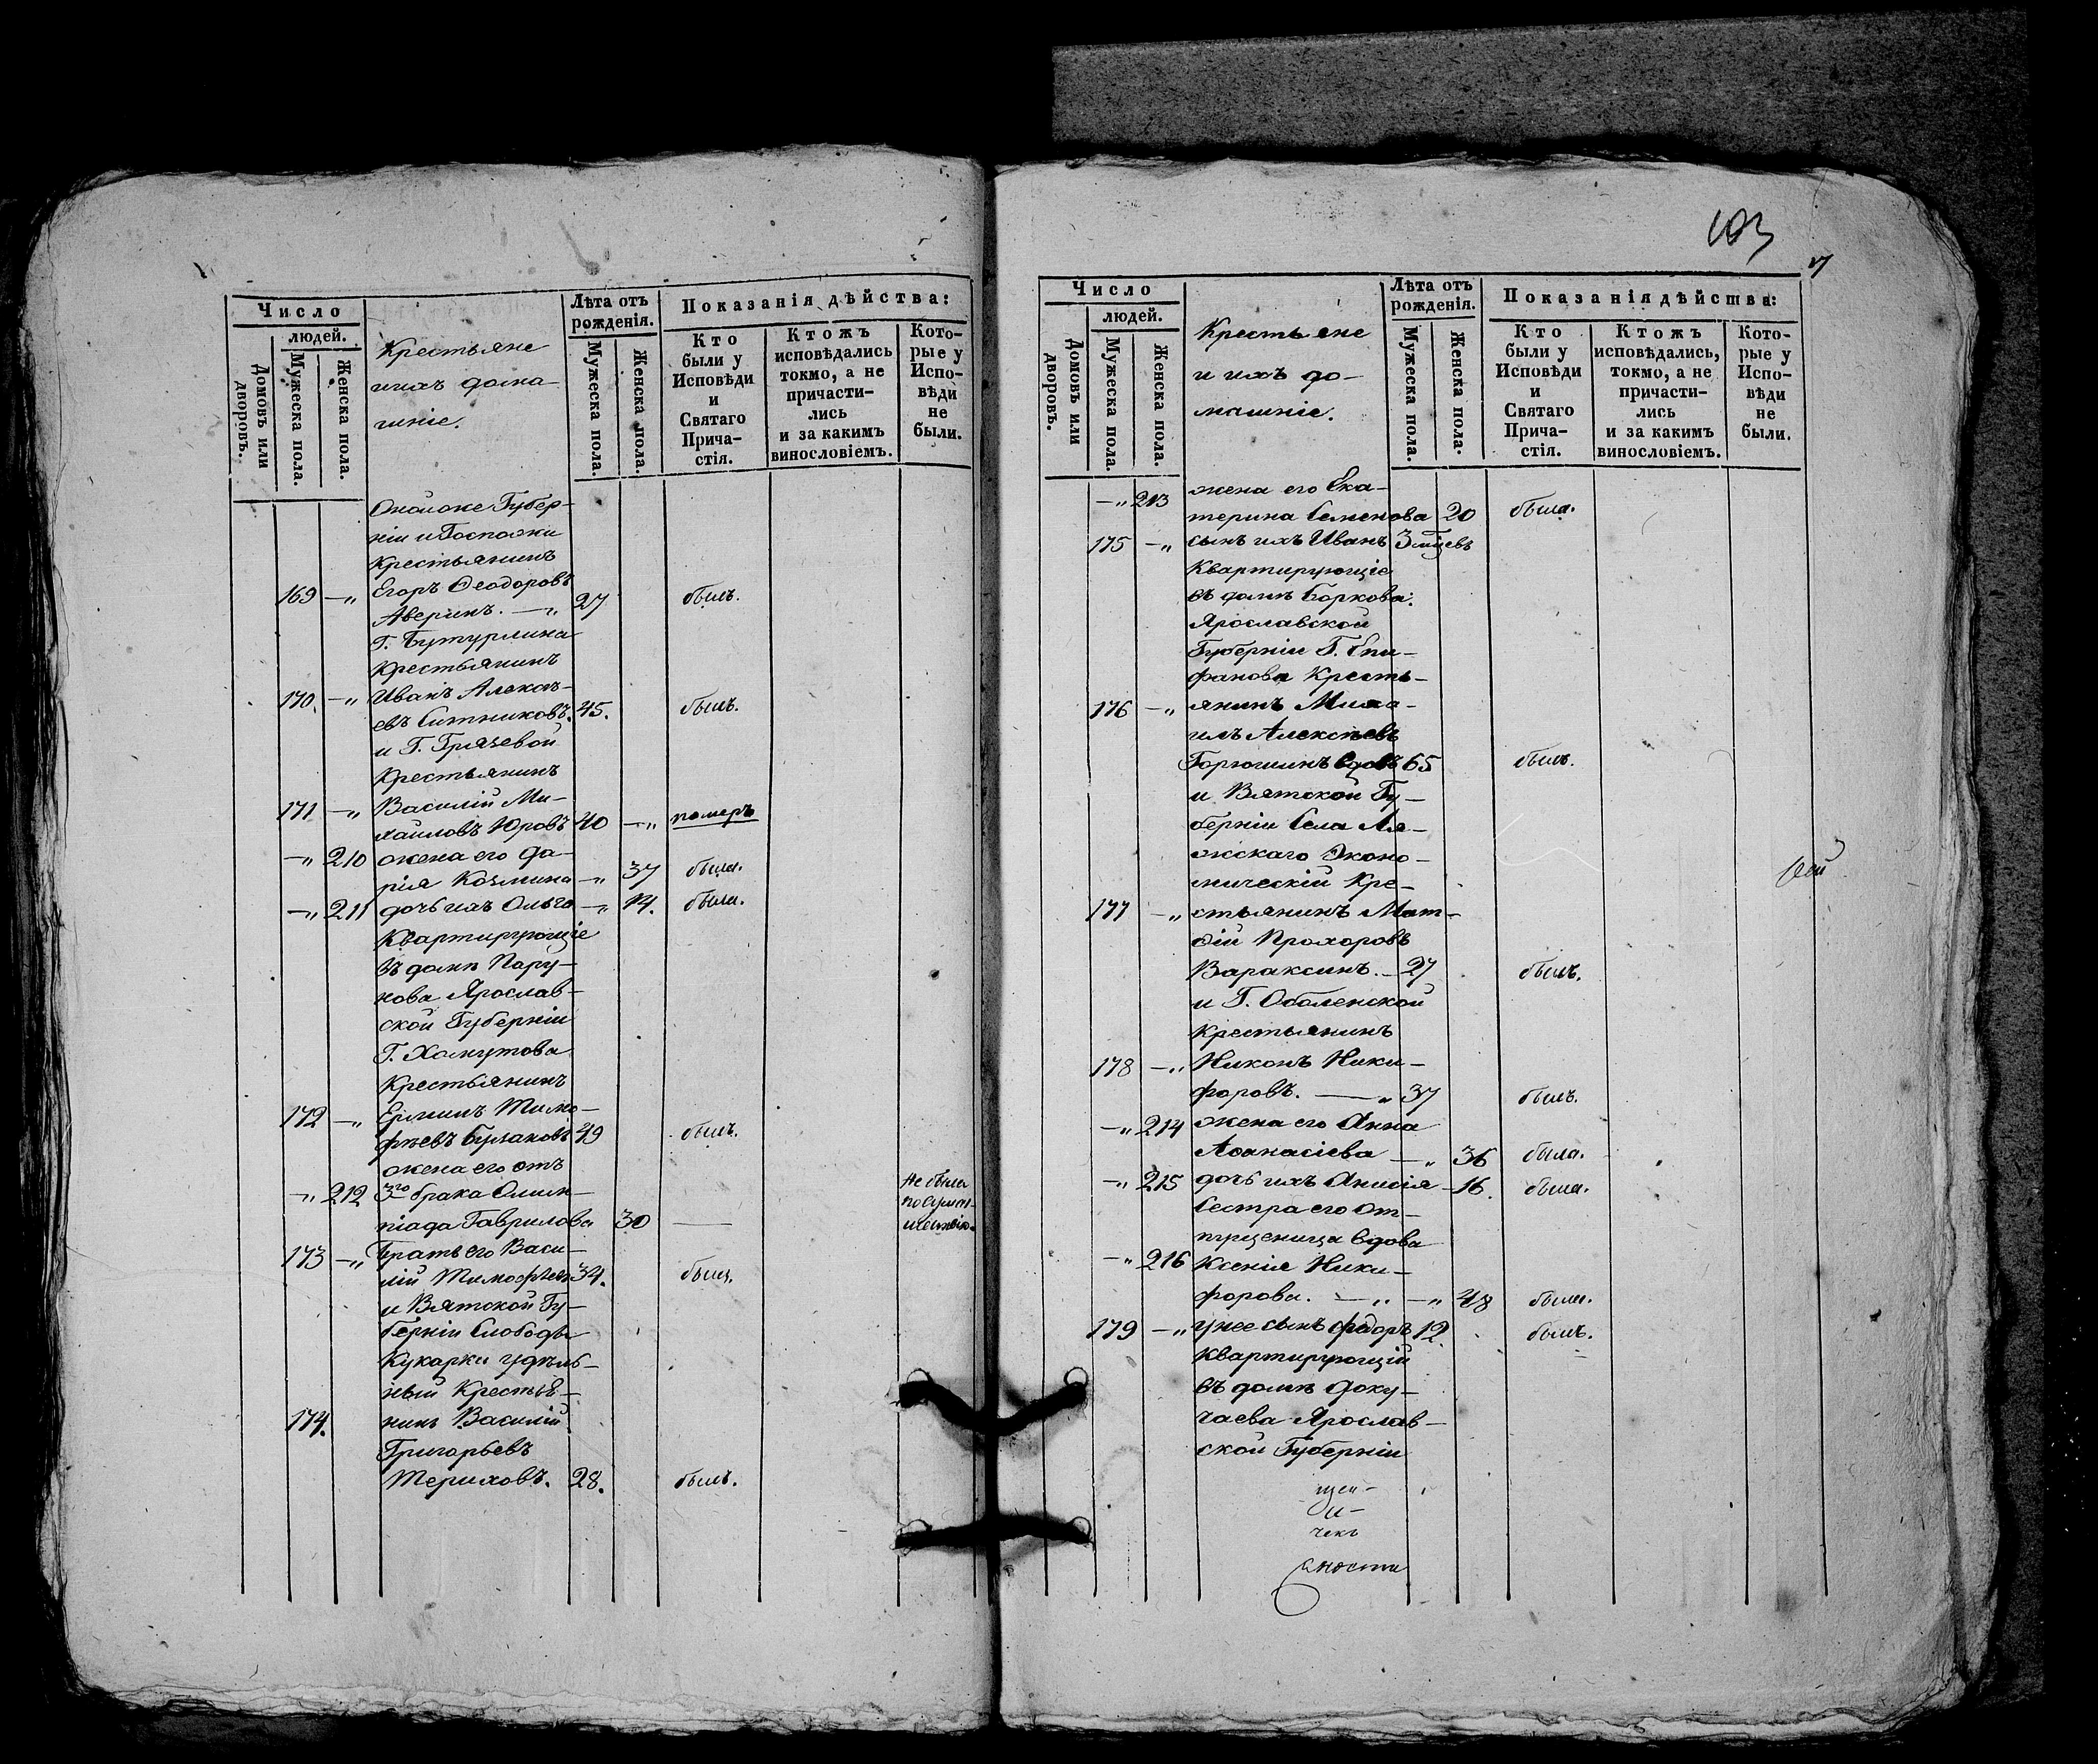 103
7
Число
людей.
Домовъ или дворовъ.
Мужеска пола.
Женска пола.
Крестьяне
и ихъ дома-
шніе.
Лѣта отъ
рожденія.
Мужеска пола.
Женска пола.
Показанія дѣйства:
Кто были у Исповѣди и Святаго Прича- стія.
Ктожъ исповѣдались токмо, а не причасти- лись и за какимъ винословіемъ.
Кото- рые у Испо- вѣди не были.
Онойже Губер-
ніи и Госпожи
Крестьянинъ
169 —„ Егоръ Ѳеодоровъ
Аверинъ. —„ 27 былъ.
Г. Бутурлина
Крестьянинъ
170. —„ Иванъ Алексѣ-
евъ Ситниковъ. 45. былъ.
и Г. Грязевой
Крестьянинъ
171 —„ Василій Ми-
хайловъ Юровъ 40 —„ померъ
—„ 210 жена его Да-
рія Козмина —„ 37 была.
—„ 211 дочь ихъ Ольга —„ 14. была.
Квартирующіе
въ домѣ Пару-
нова Ярослав-
ской Губерніи
Г. Хомутова
Крестьянинъ
172 —„ Ермилъ Тимо-
фѣевъ Бурлаковъ 49 былъ.
жена его отъ
—„ 212 3го брака Олим-
піада Гаврилова 30 — Не была
по сумас-
шествію.
173 —„ Братъ его Васи-
лій Тимофѣевъ 34. былъ.
и Вятской Гу-
берніи Слободы
Кукарки удѣль-
ный Крестья-
174. нинъ Василій
Григорьевъ
Териховъ. 28. былъ.
Число
людей.
Домовъ или дворовъ.
Мужеска пола.
Женска пола.
Крестьяне
и ихъ до-
машніе.
Лѣта отъ
рожденія.
Мужеска пола.
Женска пола.
Показанія дѣйства:
Кто были у Исповѣди и Святаго Прича- стія.
Ктожъ исповѣдались, токмо, а не причасти- лись и за какимъ винословіемъ.
Кото- рые у Испо- вѣди не были.
—„ 213 жена его Ека-
терина Семенова 20 была.
175 —„ сынъ ихъ Иванъ 3 мѣцевъ
Квартирующіе
въ домѣ Боркова:
Ярославской
Губерніи Г. Епи-
фанова Кресть-
176 —„ янинъ Миха-
илъ Алексѣевъ
Горюшинъ вдовъ 65 былъ.
и Вятской Гу-
берніи Села Ля-
жскаго Эконо-
мическій Кре-
177 —„ стьянинъ Мат-
ѳій Прохоровъ
Вараксинъ. — 27 былъ.
и Г. Оболенской
Крестьянинъ
178 —„ Никонъ Ники-
форовъ. —„ 37 былъ.
—„ 214 жена его Анна
Аѳанасіева —„ 36 была.
—„ 215 дочь ихъ Анисія — 16. была.
Сестра его от-
пущеница вдова
—„ 216 Ксенія Ники-
форова. —„ —„ 48 была.
179 —„ у нее сынъ Ѳедоръ 12. былъ.
Квартирующій
въ домѣ Доку-
чаева Ярослав-
ской Губерніи